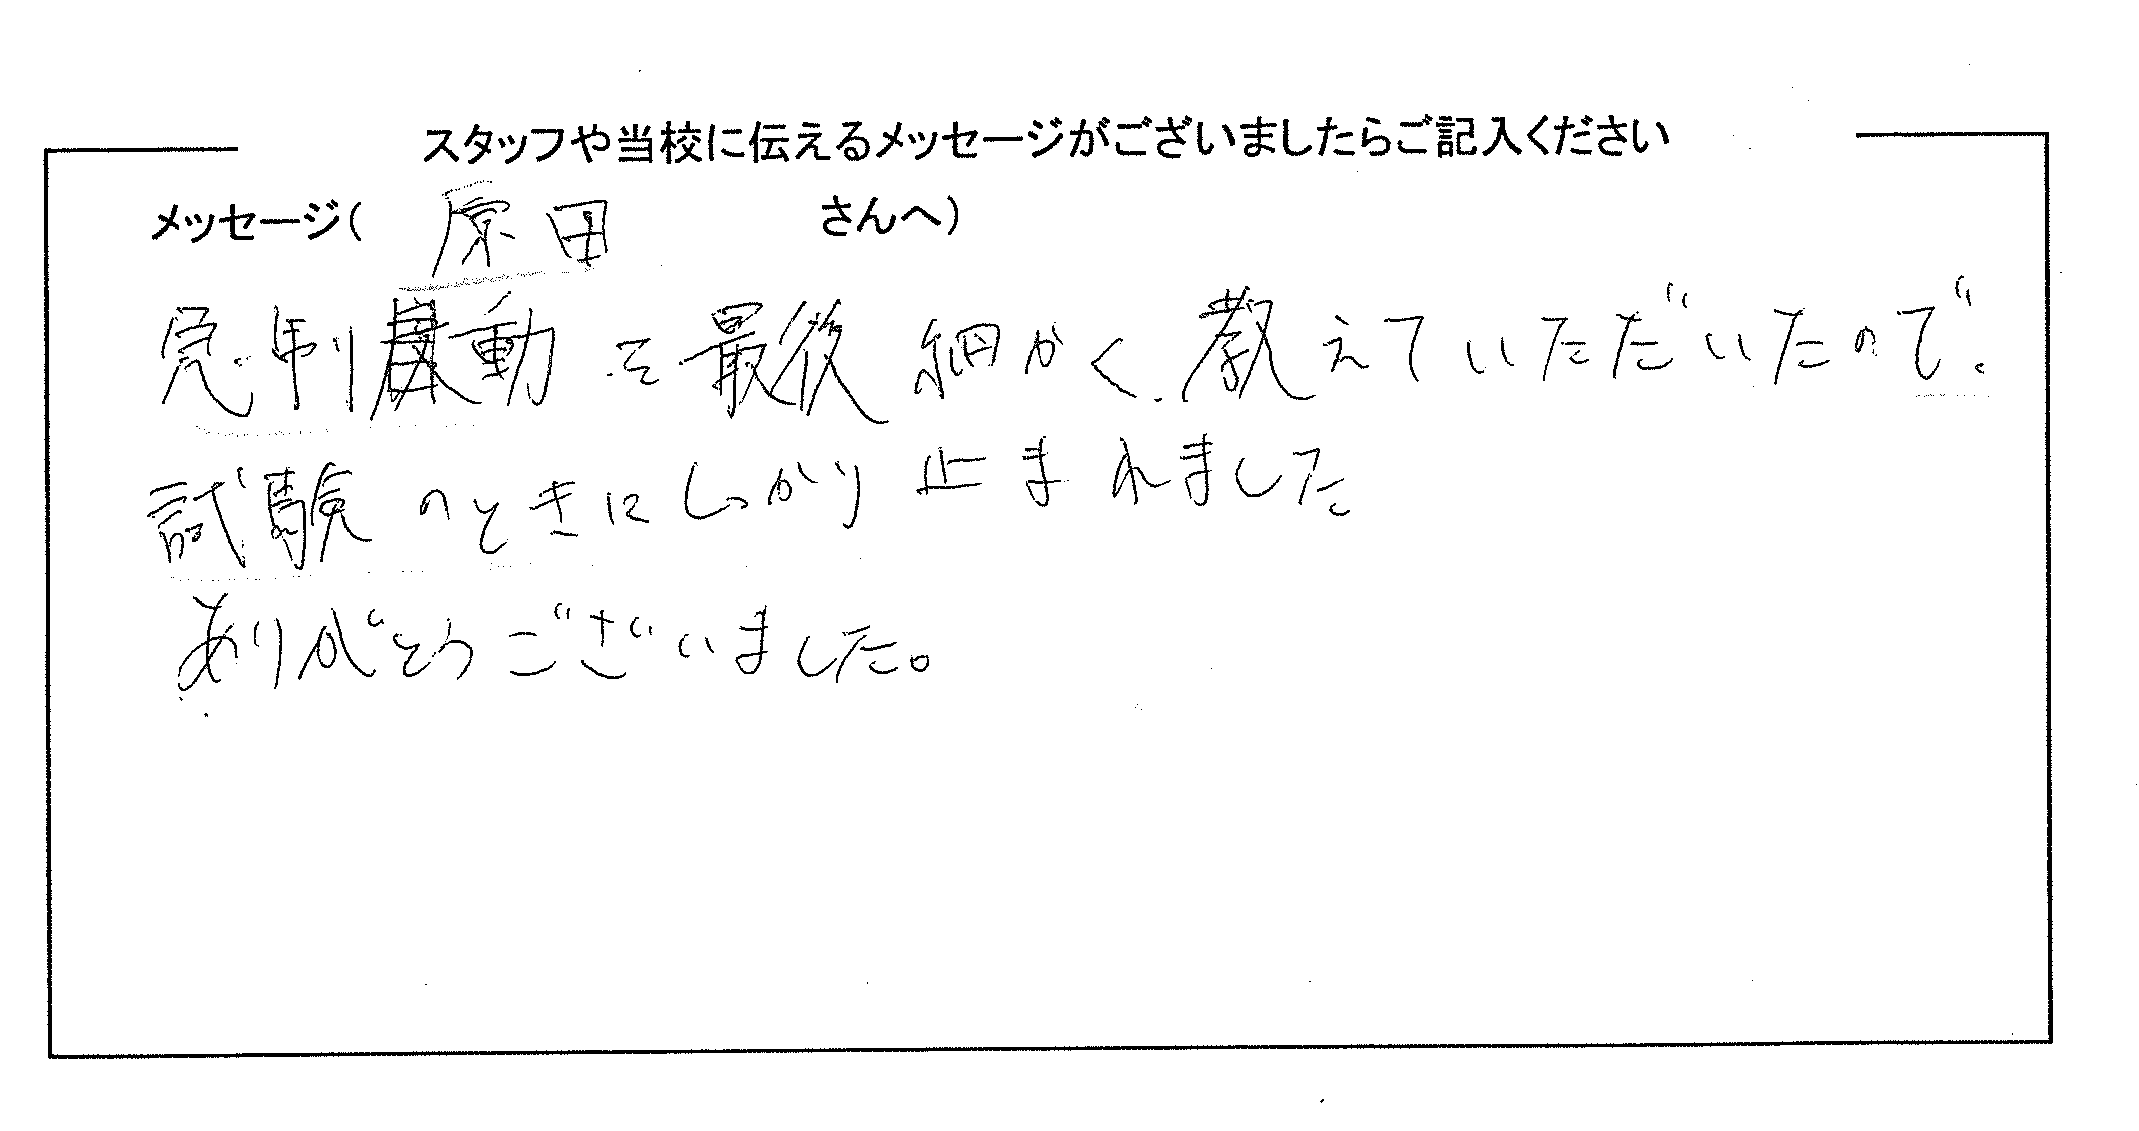 スタッフや当校に伝えるメッセージがございましたらご記入ください
メッセージ( 原田 さんへ)
急制動を最後細かく教えていただいたので、
試験のときにしっかり止まれました
ありがとうございました。